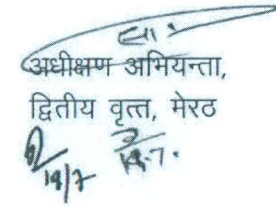 अधीक्षण अभियन्ता,
द्वितीय वृत्त, मेरठ
19/7